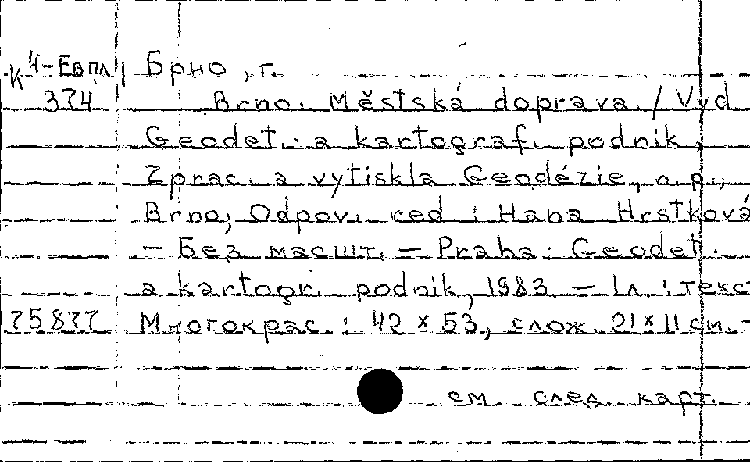 К 4-Евпл Брно, г.
374 Brno. Městská doprava / Vyd
Geodet. a kartograf. podnik,
Zprac. a vytiskla Geodézie, n. p.,
Brno; Odpov. red : Hana Hrstková
— Без масшт. — Praha: Geodet.
a kartogr. podnik, 1983 — 1л. : текст
75877 Многокрас. ; 42 × 53, слож. 21×11 см. -
см. след. карт.